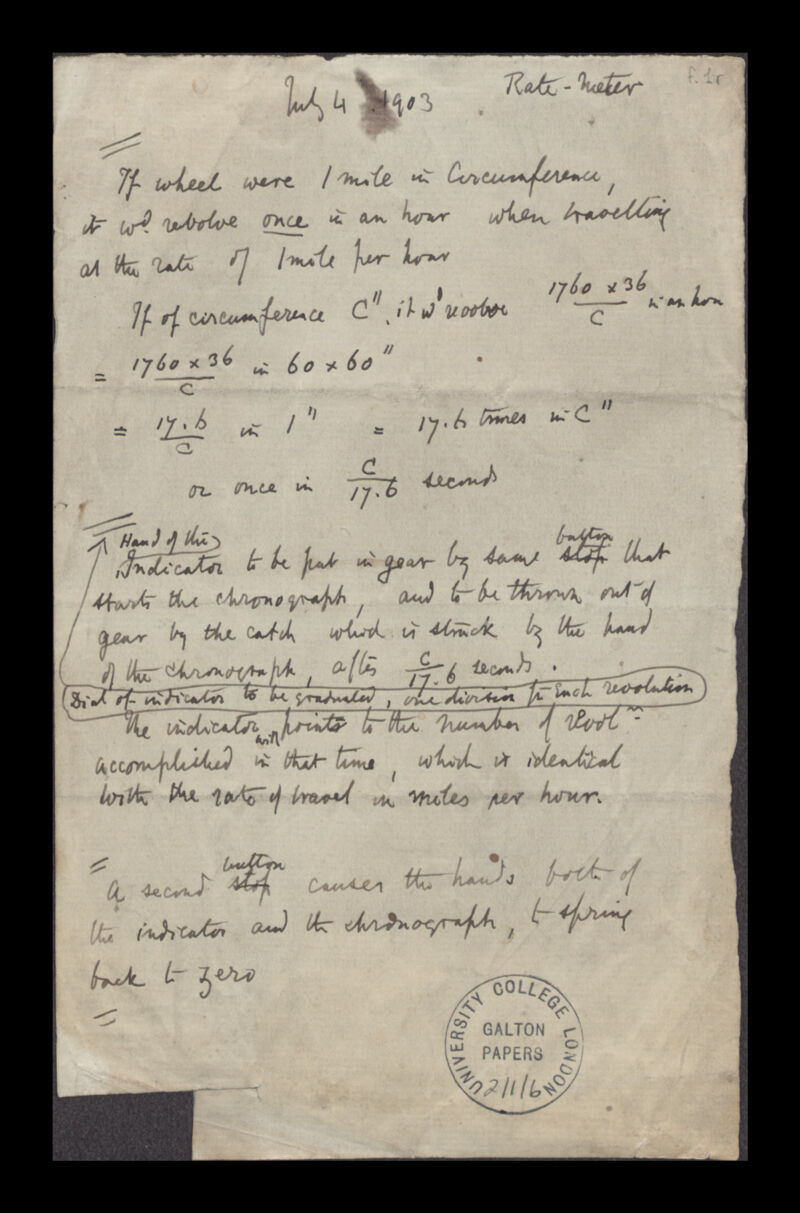 f.1r
July 4 1903 Rate-meter
If wheel were 1 mile in Circumference,
it wd revolve once in an hour when travelling
at the rate of 1 mile per hour
If of circumference C", it wd revolve 1760 x 36 / C in an hour
= 1760 x 36 / C in 60 x 60"
= 17.6 / C in 1" = 17.6 times in C"
or once in C / 17.6 seconds
Hand of the button
Indicator to be put in gear by same stop that
starts the chronograph, and to be thrown out of
gear by the catch which is struck by the hand
of the chronograph, after C / 17.6 seconds.
Dial of indicator to be graduated, one division to each revolution
The indicator will points to the number of revolns
accomplished in that time, which is identical
with the rate of travel in miles per hour.
button
A second stop causes the hands both of
the indicator and the chronograph, to spring
back to zero
UNIVERSITY COLLEGE LONDON
GALTON
PAPERS
2/1/6